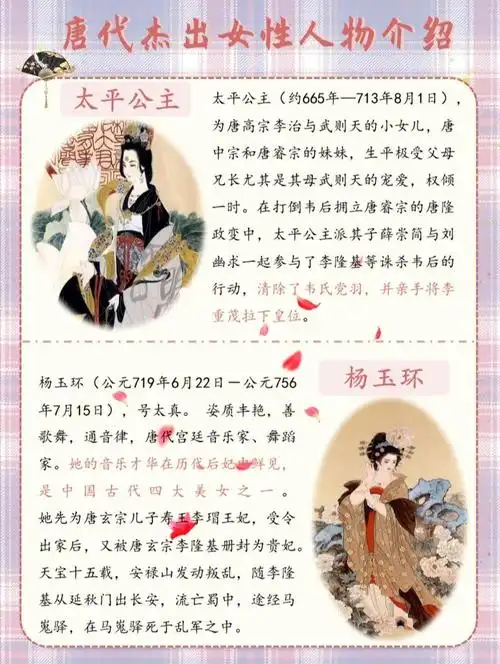 唐代杰出女性人物介绍
太平公主
太平公主（约665年—713年8月1日），
为唐高宗李治与武则天的小女儿，唐
中宗和唐睿宗的妹妹，生平极受父母
兄长尤其是其母武则天的宠爱，权倾
一时。在打倒韦后拥立唐睿宗的唐隆
政变中，太平公主派其子薛崇简与刘
幽求一起参与了李隆基等诛杀韦后的
行动，清除了韦氏党羽，并亲手将李
重茂拉下皇位。
杨玉环（公元719年6月22日－公元756
年7月15日），号太真。 姿质丰艳，善
歌舞，通音律，唐代宫廷音乐家、舞蹈
家。她的音乐才华在历代后妃中鲜见，
是中国古代四大美女之一。
她先为唐玄宗儿子寿王李瑁王妃，受令
出家后，又被唐玄宗李隆基册封为贵妃。
天宝十五载，安禄山发动叛乱，随李隆
基从延秋门出长安，流亡蜀中，途经马
嵬驿，在马嵬驿死于乱军之中。
杨玉环